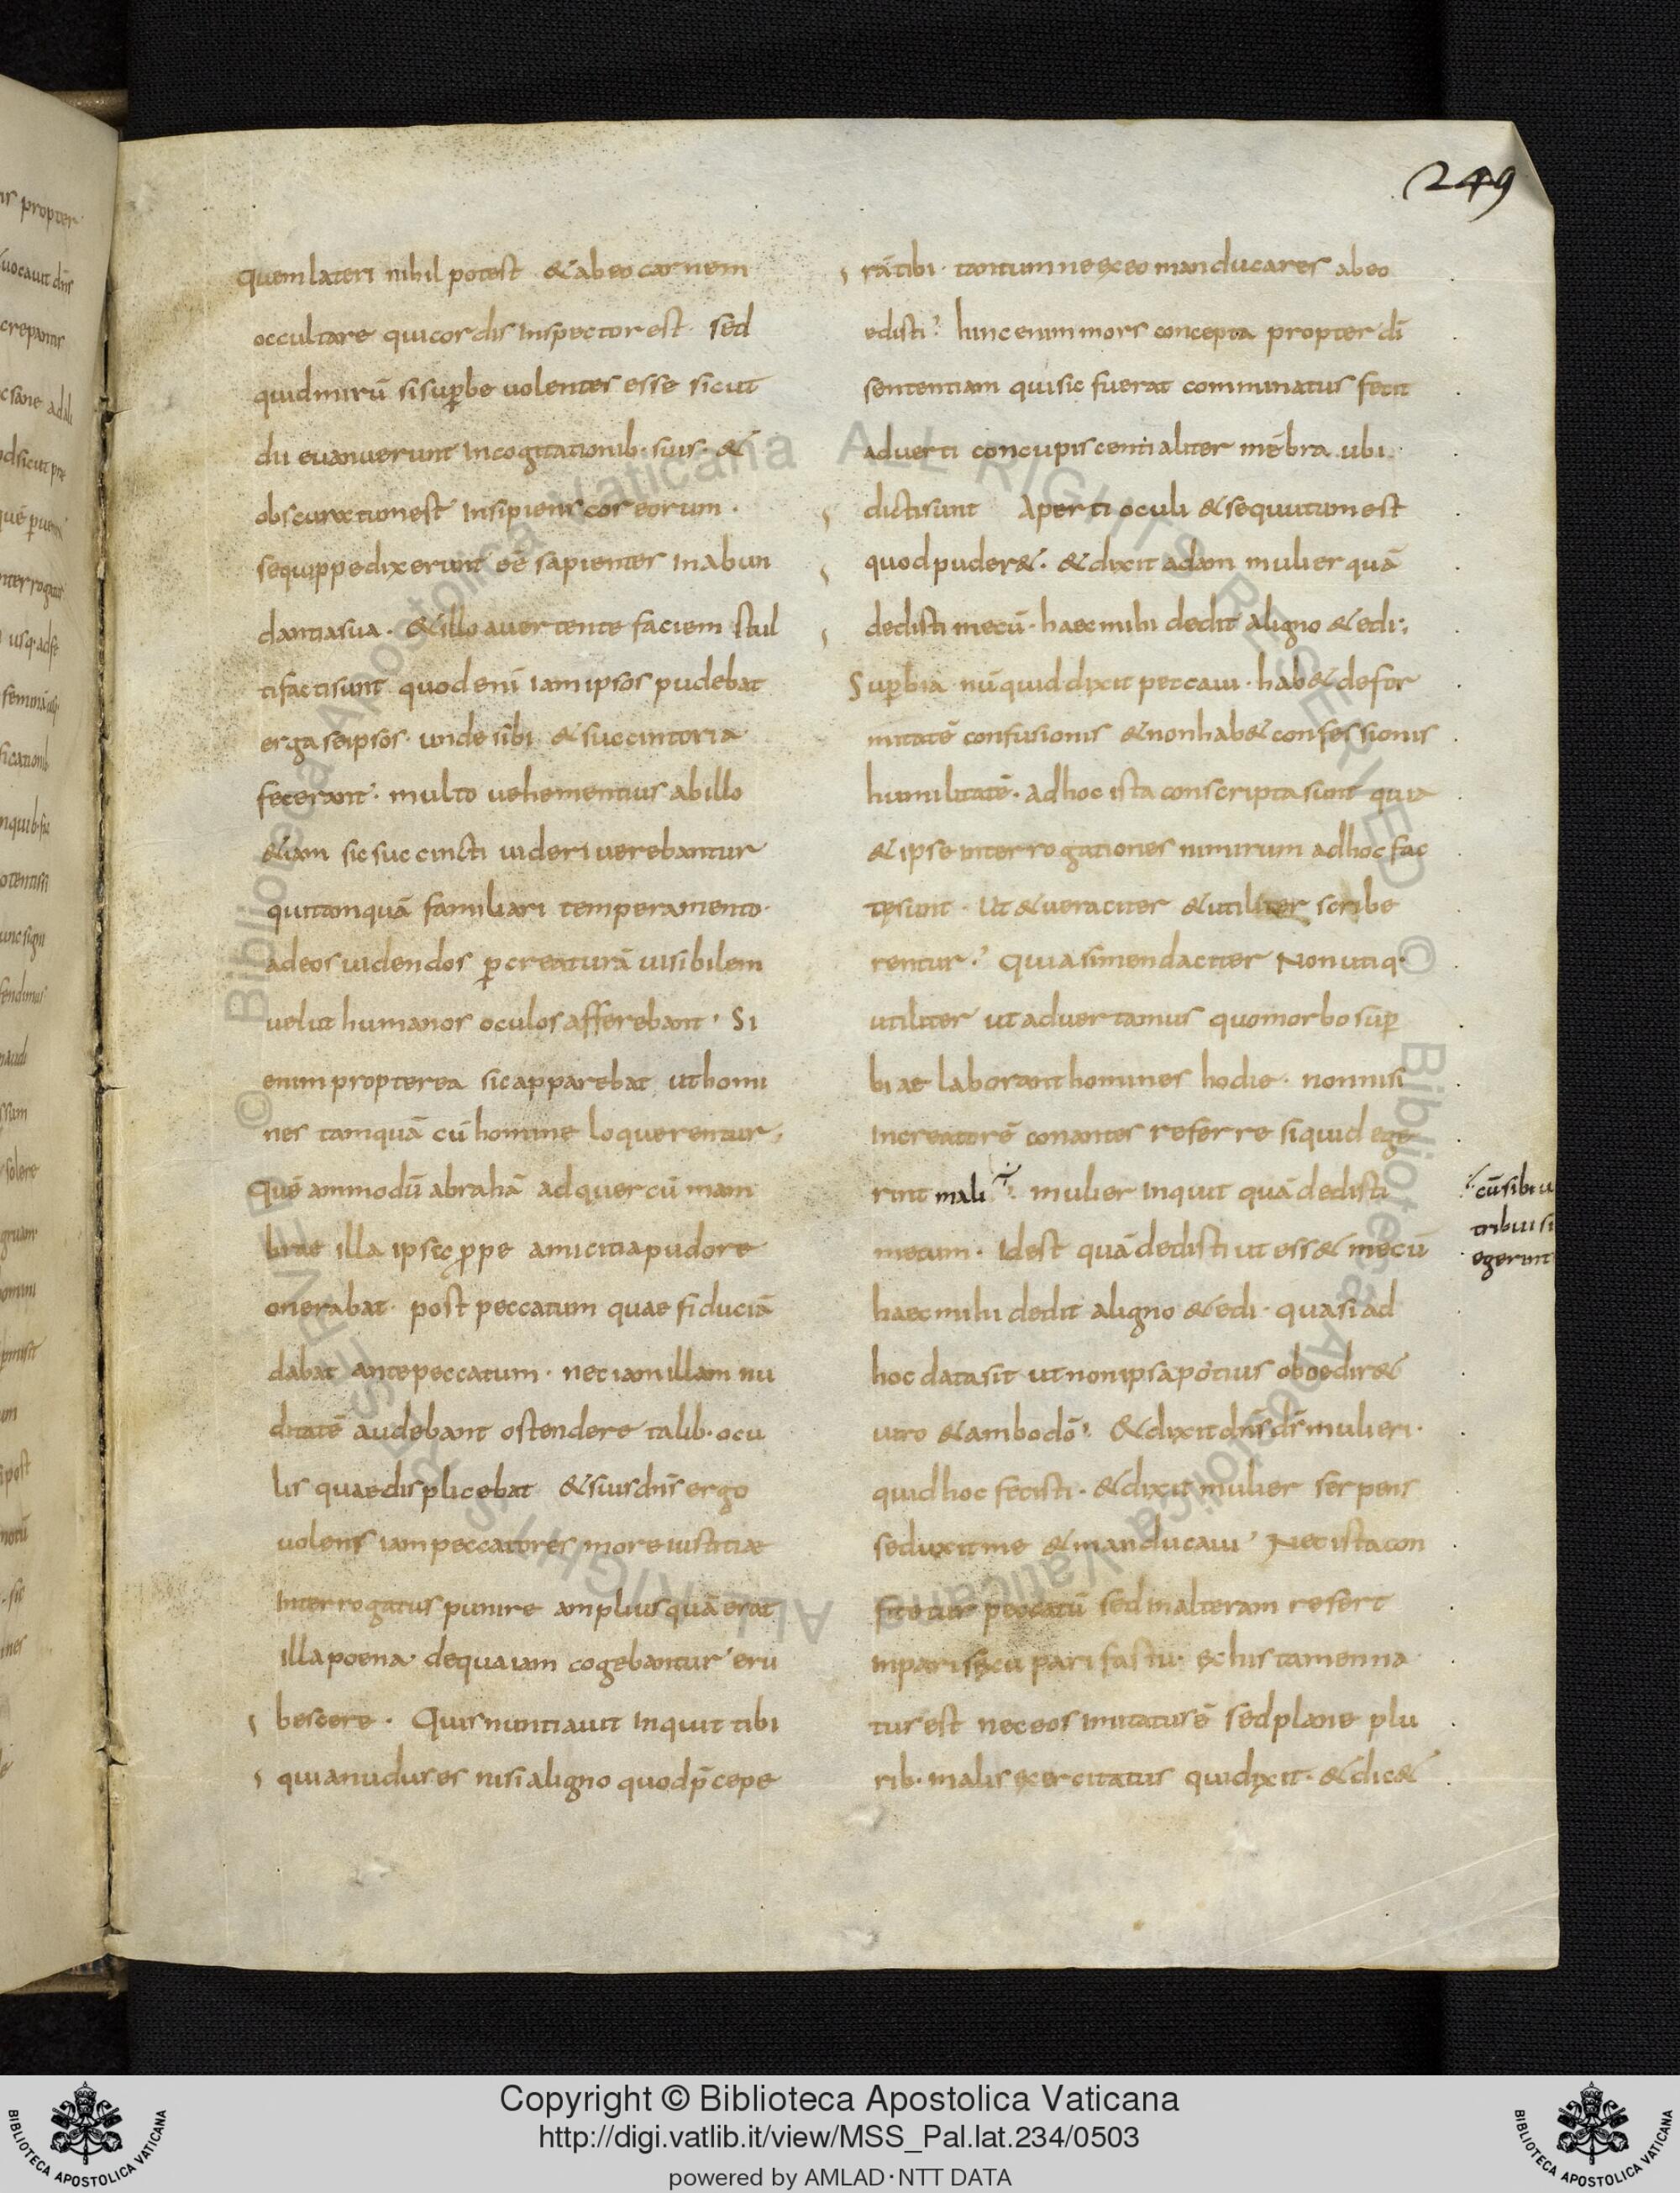 249
quem lateri nihil potest & ab eo carnem
occultare qui cordis inspector est. sed
quid mirū si suꝑbe uolentes esse sicut
dii euanuerunt in cogitationib. suis. &
obscuratum est insipiens cor eorum.
se quippe dixerunt eē sapientes in abun
dantia sua. & illo auertente faciem stul
ti facti sunt quod eni iam ipsos pudebat
erga seipsos. unde sibi & succintoria
fecerant. multo uehementius ab illo
&iam sic succincti uideri uerebantur
qui tamquā familiari temperamento.
ad eos uidendos ꝑ creaturā uisibilem
uelut humanos oculos afferebant. Si
enim propterea sic apparebat ut homi
nes tamquā cū homine loquerentur,
Quē ammodū abrahā ad quercū mam
brae illa ipse ꝓpe amicitia pudore
onerabat. post peccatum quae fiduciā
dabat ante peccatum. nec iam illam nu
ditatē audebant ostendere talib. ocu
lis quae displicebat & suis dns̄ ergo
uolens iam peccatores more iustitiae
interrogatus punire amplius quā erat
illa poena. de qua iam cogebantur eru
bescere. Quis nuntiauit inquit tibi
quia nudus es nisi a ligno quod p̄cepe
rā tibi. tantum ne ex eo manducares ab eo
edisti? hinc enim mors concepta propter dī
sententiam qui sic fuerat comminatus fecit
aduerti concupiscentialiter mēbra. ubi
dicti sunt Aperti oculi & sequutum est
quod puder&. & dixit adam mulier quā
dedisti mecū. haec mihi dedit a ligno & edi;
Suꝑbia nūquid dixit peccaui. hab& defor
mitatē confusionis & non hab& confessionis
humilitatē. ad hoc ista conscripta sunt quia
& ipse interrogationes nimirum ad hoc fac
tę sunt. Ut & ueraciter & utiliter scribe
rentur. Quia si mendaciter Non utiq.
utiliter ut aduertamus quo morbo suꝑ
biae laborant homines hodie. non nisi
in creatorē conantes referre si quid ege
rint mali. mulier inquit quā dedisti
mecum. Id est quā dedisti ut ess& mecū
haec mihi dedit a ligno & edi. quasi ad
hoc data sit ut non ipsa potius oboedir&
uiro & ambo dō. & dixit dns̄ ds̄ mulieri.
quid hoc fecisti. & dixit mulier serpens
seduxit me & manducaui Nec ista con
fitetur peccatū sed in alteram refert
inpari sexū pari fastu. ex his tamen na
tus est nec eos imitatus ē sed plane plu
rib. malis exercitatus qui dixit. & dic&
cū sibi u
tribui si
egerint
Copyright © Biblioteca Apostolica Vaticana
http://digi.vatlib.it/view/MSS_Pal.lat.234/0503
powered by AMLAD·NTT DATA
BIBLIOTECA APOSTOLICA VATICANA
BIBLIOTECA APOSTOLICA VATICANA
© Biblioteca Apostolica Vaticana ALL RIGHTS RESERVED
© Biblioteca Apostolica Vaticana ALL RIGHTS RESERVED